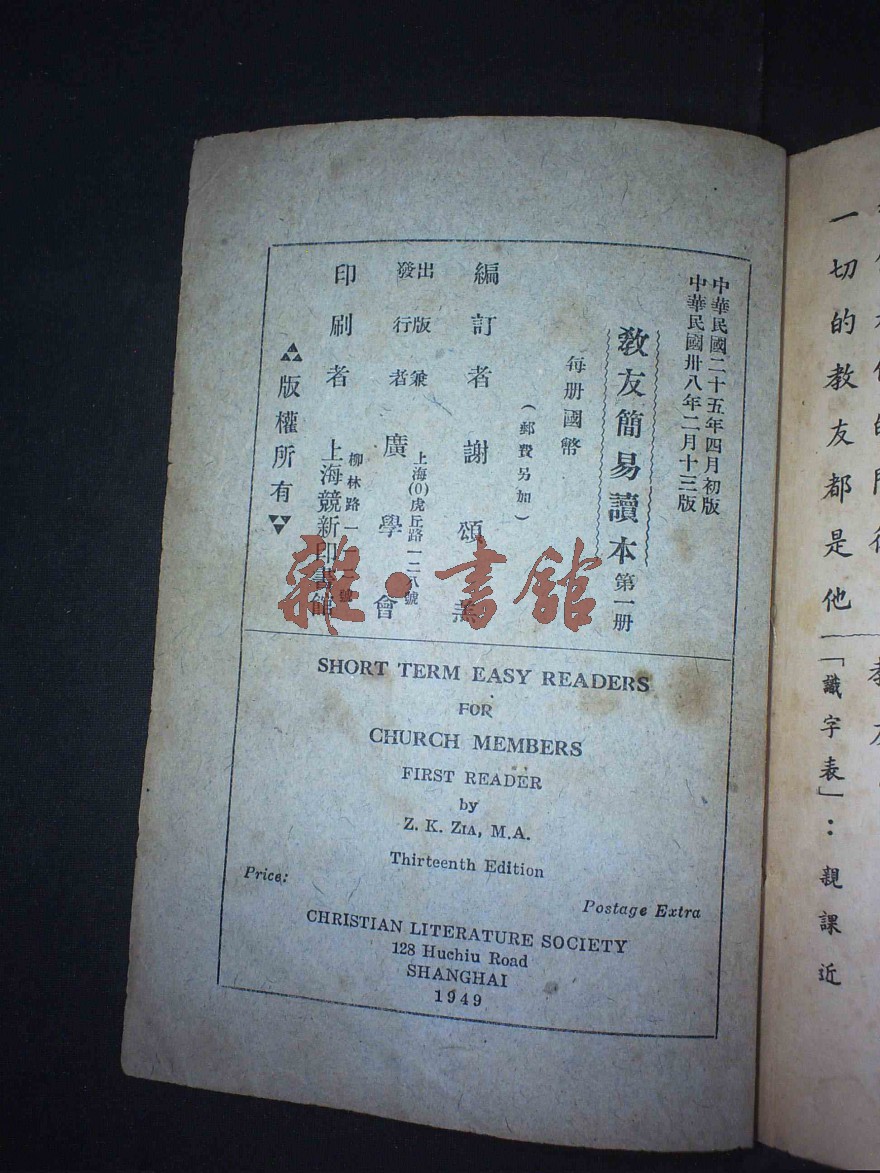 中華民國二十五年四月初版
中華民國卅八年二月十三版
教友簡易讀本 第一册
每册國幣
(郵費另加)
編訂者 謝頌羔
出版兼
發行者
上海(0)虎丘路一二八號
廣學會
印刷者
上海競新印書館
版權所有
SHORT TERM EASY READERS
FOR
CHURCH MEMBERS
FIRST READER
by
Z. K. ZIA, M.A.
Thirteenth Edition
Price:
Postage Extra
CHRISTIAN LITERATURE SOCIETY
128 Huchiu Road
SHANGHAI
1949
一切的教友都是他
「識字表」：親課近
雜·書館